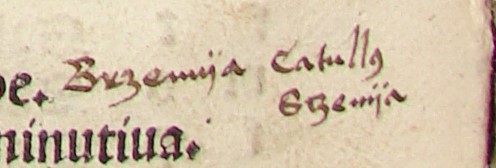 oc. Brzemija Catullꝰ
Sczenija
minutiua.